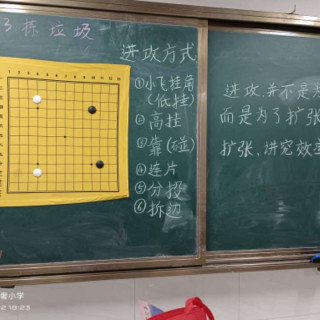 3.拣垃圾
进攻方式
①小飞挂角
(低挂)
②高挂
③靠(碰)
④连片
⑤分投
⑥拆边
进攻.并不是为
而是为了扩张
扩张.讲究效率
小学